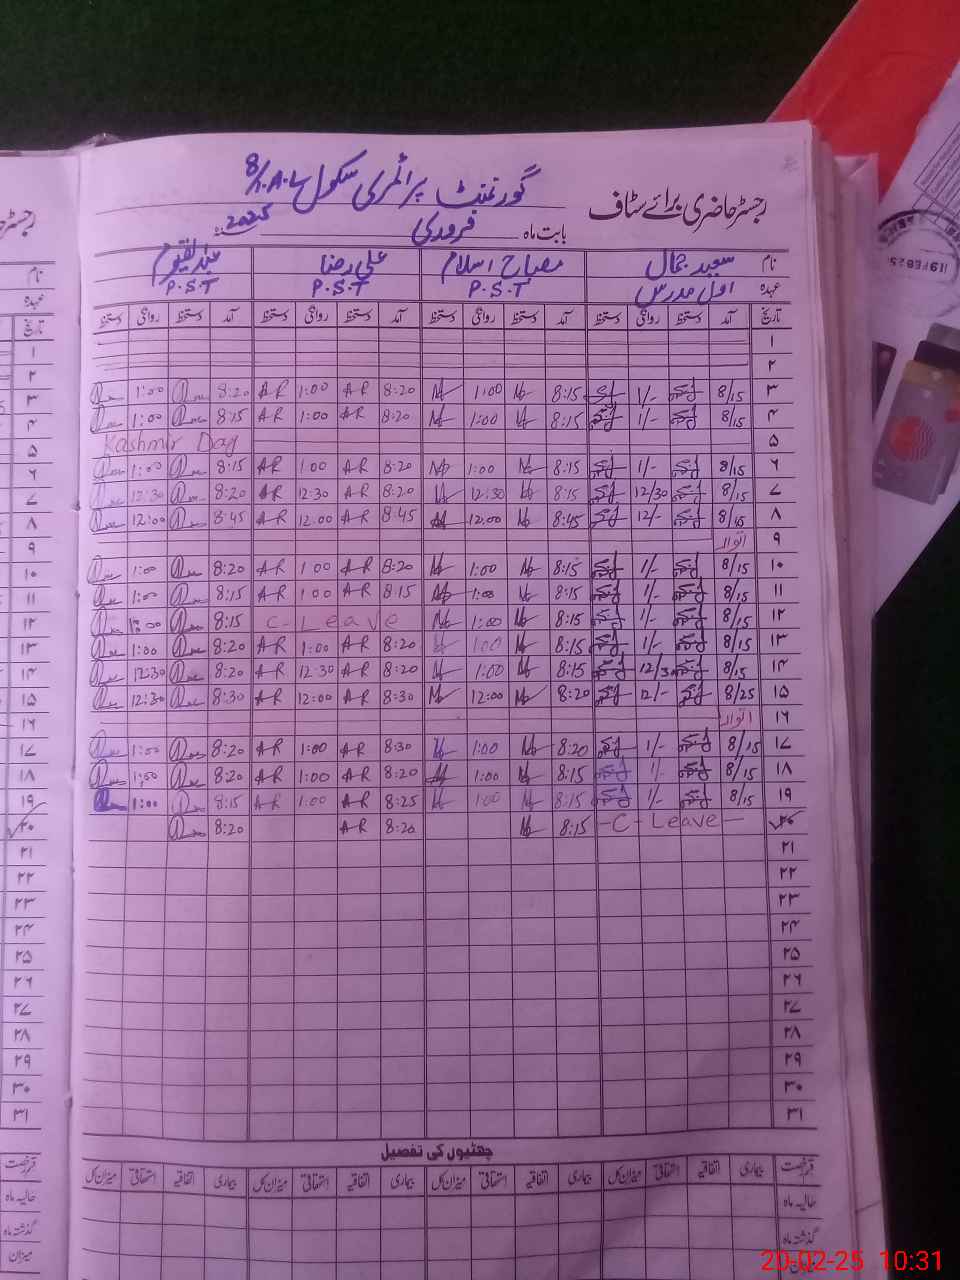 گورنمنٹ پرائمری سکول 8/1.A.L
رجسٹر حاضری برائے سٹاف
بابت ماہ فروری 2025ء
نام سعید جمال مصباح اسلام علی رضا عبدالقیوم
عہدہ اول مدرس P.S.T P.S.T P.S.T
تاریخ آمد دستخط روانگی دستخط آمد دستخط روانگی دستخط آمد دستخط روانگی دستخط آمد دستخط روانگی دستخط
۱
۲
۳ 8/15 1/- 8:15 1:00 8:20 A-R 1:00 A-R 8:20 1:00
۴ 8/15 1/- 8:15 1:00 8:20 A-R 1:00 A-R 8:15 1:00
۵ Kashmir Day
۶ 8/15 1/- 8:15 1:00 8:20 A-R 1:00 A-R 8:15 1:00
۷ 8/15 12/30 8:15 12:30 8:20 A-R 12:30 A-R 8:20 12:30
۸ 8/45 12/- 8:45 12:00 8:45 A-R 12:00 A-R 8:45 12:00
۹ اتوار
۱۰ 8/15 1/- 8:15 1:00 8:20 A-R 1:00 A-R 8:20 1:00
۱۱ 8/15 1/- 8:15 1:00 8:15 A-R 1:00 A-R 8:15 1:00
۱۲ 8/15 1/- 8:15 1:00 C-Leave 8:15
۱۳ 8/15 1/- 8:15 1:00 8:20 A-R 1:00 A-R 8:20 1:00
۱۴ 8/15 12/30 8:15 1:00 8:20 A-R 12:30 A-R 8:20 12:30
۱۵ 8/25 12/- 8:20 12:00 8:30 A-R 12:00 A-R 8:30 12:30
۱۶ اتوار
۱۷ 8/15 1/- 8:20 1:00 8:30 A-R 1:00 A-R 8:20 1:00
۱۸ 8/15 1/- 8:15 1:00 8:20 A-R 1:00 A-R 8:20 1:00
۱۹ 8/15 1/- 8:15 1:00 8:25 A-R 1:00 A-R 8:15 1:00
۲۰ -C-Leave- 8:15 8:20 A-R 8:20
۲۱
۲۲
۲۳
۲۴
۲۵
۲۶
۲۷
۲۸
۲۹
۳۰
۳۱
چھٹیوں کی تفصیل
قسم رخصت بیماری اتفاقیہ استحقاقی میزان کل بیماری اتفاقیہ استحقاقی میزان کل بیماری اتفاقیہ استحقاقی میزان کل بیماری اتفاقیہ استحقاقی میزان کل
حالیہ ماہ
گذشتہ ماہ
میزان
20-02-25 10:31